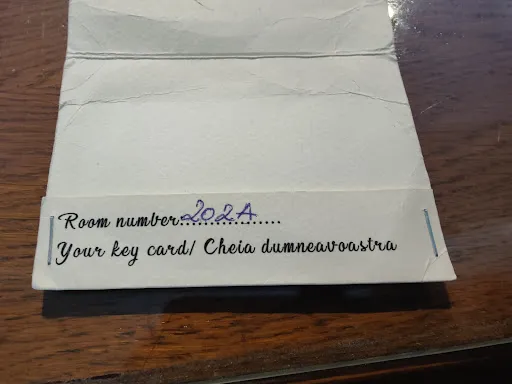 Room number..202A..............
Your key card/ Cheia dumneavoastra